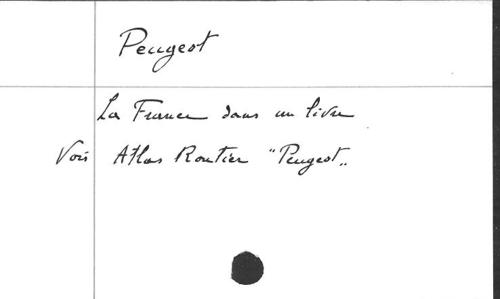 Peugeot
La France dans un livre
Voir Atlas Routier "Peugeot"